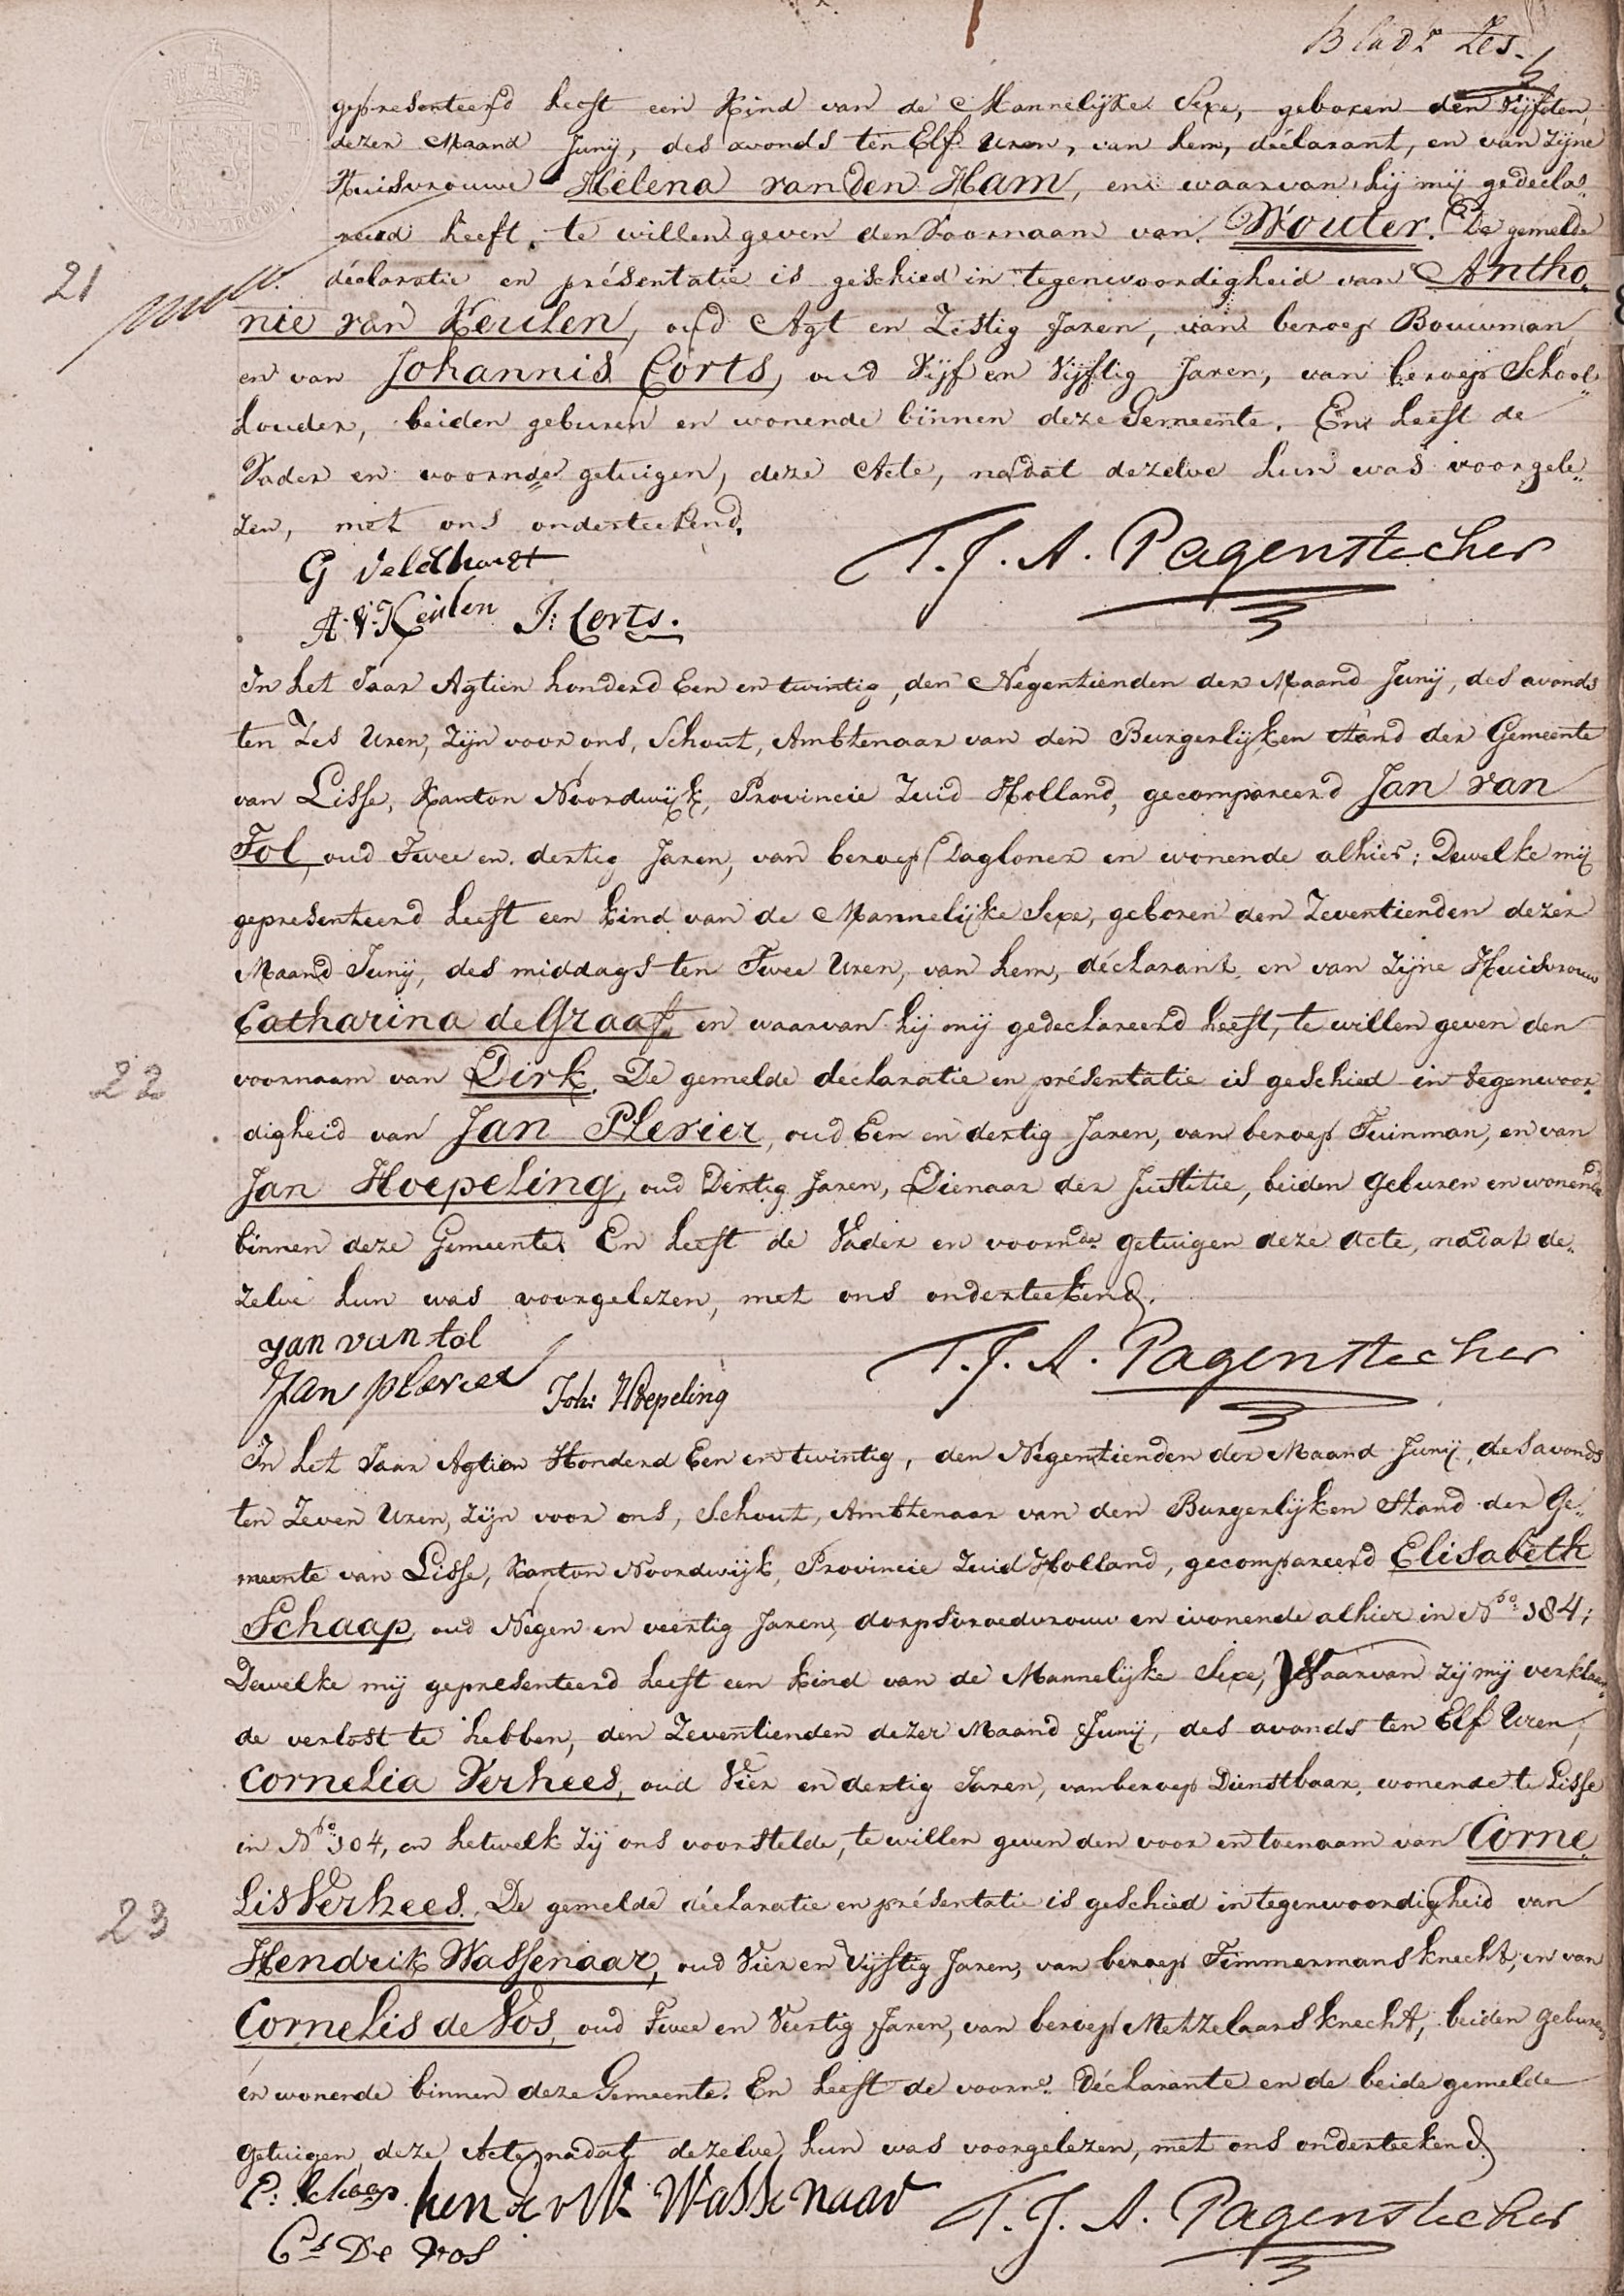 Bladz. Zes.
gepresenteerd heeft een Kind van de Mannelijke Sexe, geboren den Vijfden
dezer Maand Junij, des avonds ten Elf Uren, van hem, déclarant, en van zijne
Huisvrouwe Helena van den Ham, en waarvan hij mij gedecla„
reerd heeft, te willen geven den Voornaam van Wouter. De gemelde
21
déclaratie en présentatie is geschied in tegenwoordigheid van Antho„
nie van Keulen, oud Agt en Zestig Jaren, van beroep Bouwman
en van Johannis Corts, oud Vijf en Vijftig Jaren, van beroep School„
houder, beiden geburen en wonende binnen deze Gemeente. En heeft de
Vader en voornde getuigen, deze Acte, nadat dezelve hun was voorgele„
zen, met ons onderteekend.
G Veldhorst
T. J. A. Pagenstecher
A. V. Keulen J: Corts.
In het Jaar Agtien honderd Een en twintig, den Negentienden der Maand Junij, des avonds
ten Zes Uren, zijn voor ons, Schout, Ambtenaar van den Burgerlijken Stand der Gemeente
van Lisse, Kanton Noordwijk, Provincie Zuid Holland, gecompareerd Jan van
Tol, oud Twee en dertig Jaren, van beroep Dagloner en wonende alhier; Dewelke mij
gepresenteerd heeft een kind van de Mannelijke Sexe, geboren den Zeventienden dezer
Maand Junij, des middags ten Twee Uren, van hem, déclarant en van zijne Huisvrouw
Catharina de Graaf, en waarvan hij mij gedeclareerd heeft, te willen geven den
22
voornaam van Dirk. De gemelde déclaratie en présentatie is geschied in tegenwoor„
digheid van Jan Plevier, oud Een en dertig Jaren, van beroep Tuinman, en van
Jan Hoepeling, oud Dertig Jaren, Dienaar der Justitie, beiden geburen en wonende
binnen deze Gemeente. En heeft de Vader en voornde getuigen deze Acte, nadat de„
zelve hun was voorgelezen, met ons onderteekend.
Jan van tol
T. J. A. Pagenstecher
Jan plevier Joh: Hoepeling
In het Jaar Agtien Honderd Een en twintig, den Negentienden der Maand Junij, des avonds
ten Zeven Uren, zijn voor ons, Schout, Ambtenaar van den Burgerlijken Stand der Ge„
meente van Lisse, Kanton Noordwijk, Provincie Zuid Holland, gecompareerd Elisabeth
Schaap, oud Negen en veertig Jaren, dorpsvroedvrouw en wonende alhier in No 184;
Dewelke mij gepresenteerd heeft een kind van de Mannelijke Sexe, Waarvan zij mij verklaar„
de verlost te hebben, den Zeventienden dezer Maand Junij, des avonds ten Elf Uren,
Cornelia Verhees, oud Vier en dertig Jaren, van beroep Dienstbaar, wonende te Lisse
in No 104, en hetwelk zij ons voorstelde, te willen geven den voor en toenaam van Corne„
23
lis Verhees. De gemelde déclaratie en présentatie is geschied in tegenwoordigheid van
Hendrik Wassenaar, oud Vier en Vijftig Jaren, van beroep Timmermans knecht, en van
Cornelis de Vos, oud Twee en Veertig Jaren, van beroep Metzelaars knecht, beiden geburen
en wonende binnen deze Gemeente. En heeft de voorne. Déclarante en de beide gemelde
getuigen, deze Acte nadat dezelve hun was voorgelezen, met ons onderteekend
E: Schaap hendrik Wassenaar T. J. A. Pagenstecher
Cs De Vos